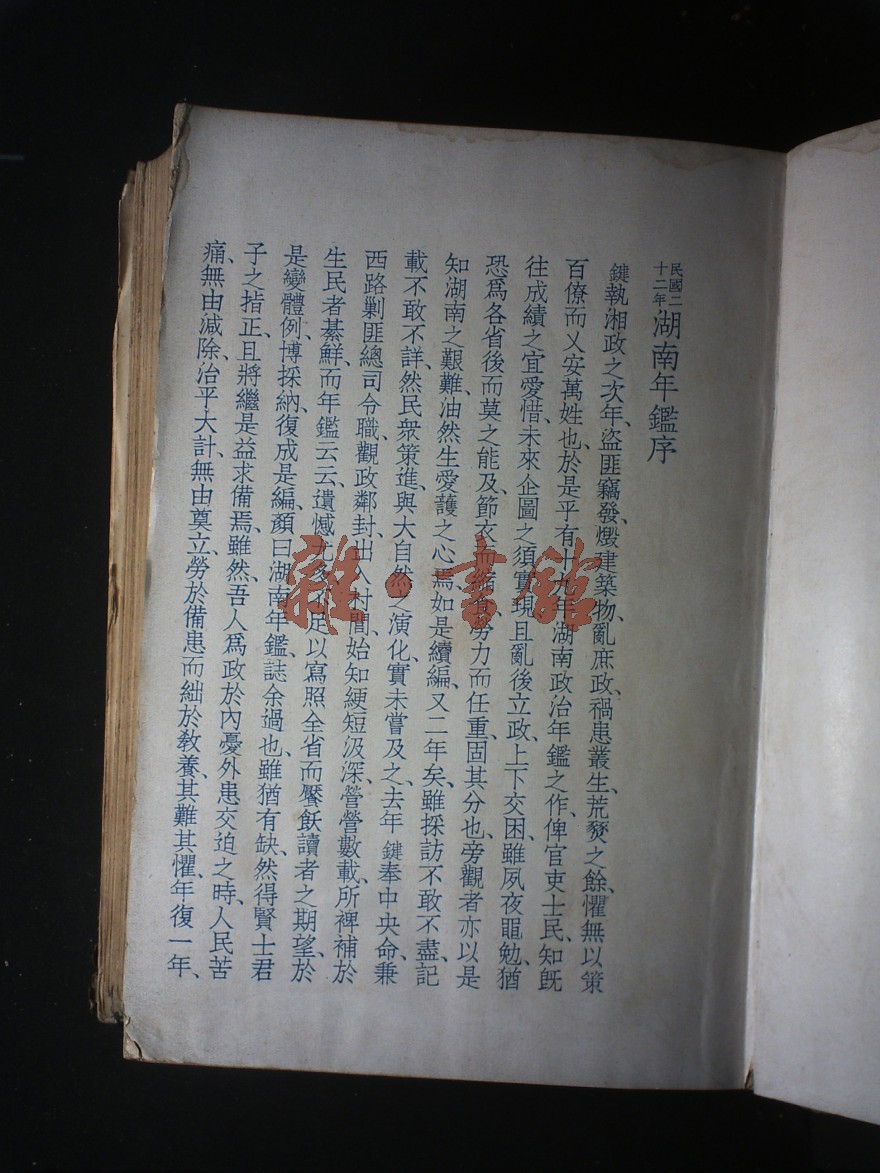 民國二
十二年
湖南年鑑序
鍵執湘政之次年、盜匪竊發、燬建築物、亂庶政、禍患叢生、荒燹之餘、懼無以策
百僚而乂安萬姓也、於是乎有十九年湖南政治年鑑之作、俾官吏士民、知既
往成績之宜愛惜、未來企圖之須實現、且亂後立政、上下交困、雖夙夜黽勉、猶
恐爲各省後而莫之能及、節衣而縮食、努力而任重、固其分也、旁觀者亦以是
知湖南之艱難、油然生愛護之心焉、如是續編、又二年矣、雖採訪不敢不盡、記
載不敢不詳、然民衆策進、與大自然之演化、實未嘗及之、去年 鍵奉中央命、兼
西路剿匪總司令職、觀政鄰封、出入村閭、始知綆短汲深、營營數載、所裨補於
生民者綦鮮、而年鑑云云、遺憾尤多、不足以寫照全省而饜飫讀者之期望、於
是變體例、博採納、復成是編、顏曰湖南年鑑、誌余過也、雖猶有缺、然得賢士君
子之指正、且將繼是益求備焉、雖然、吾人爲政於內憂外患交迫之時、人民苦
痛、無由減除、治平大計、無由奠立、勞於備患而絀於教養、其難其懼、年復一年、
雜·書館